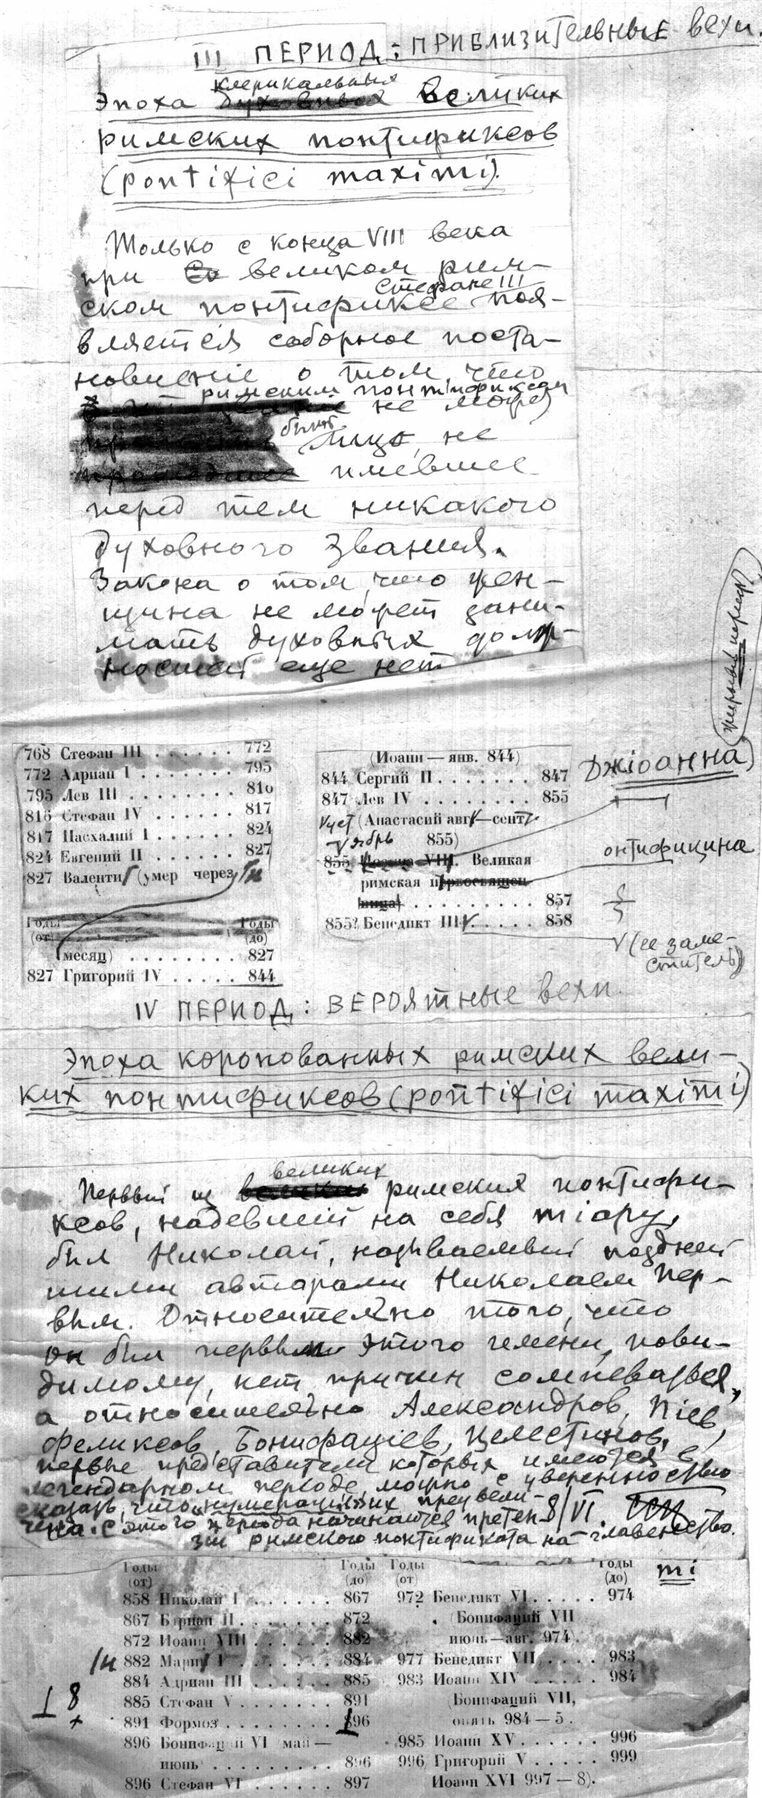 III ПЕРИОД: ПРИБЛИЗИТЕЛЬНЫЕ вехи.
клерикальных
Эпоха великих
римских понтифексов
(pontifici maximi).
Только с конца VIII века
при великом рим-
Стефане III
ском понтификсе поя-
вляется соборное поста-
новление о том, что
римским понтификсом
не может
быть лицо, не
имевшее
перед тем никакого
духовного звания.
Закона о том, что жен-
щина не может зани-
мать духовных долж-
ностей еще нет
768 Стефан III . . . . . . 772
772 Адриан I . . . . . . . 795
795 Лев III . . . . . . . . 816
816 Стефан IV . . . . . . 817
817 Пасхалий I . . . . . . 824
824 Евгений II . . . . . . 827
827 Валенти (умер через /н
Годы (от) Годы (до)
месяц) . . . . . . . . 827
827 Григорий IV . . . . . 844
(Иоанн — янв. 844)
844 Сергий II . . . . . . . 847
847 Лев IV . . . . . . . . 855
(Анастасий авг — сент
855)
855 Иоанна VIII. Великая
римская первосвящен
ница) . . . . . . . . . . 857
855? Бенедикт III . . . . . 858
Джіоанна
онтифицина
V (ее заме-
ститель)
IV ПЕРИОД: ВЕРОЯТНЫЕ вехи.
Эпоха коронованных римских вели-
ких понтификсов (pontifici maximi)
великих
Первый из римских понтифи-
ксов, надевший на себя тіару,
был Николай, называемый поздней
шими авторами Николаем Пер-
вым. Относительно того, что
он был первым этого имени, пови-
димому, нет причин сомневаться,
а относительно Александров, Піев,
Феликсов, Бонифаціев, Целестинов,
первые представители которых имеются в
легендарном периоде, можно с уверенностью
сказать, что нумерация их преувели-
чена. С этого периода начинается претен-
зии римского понтификата на главенство.
8/VI.
Годы (от) Годы (до) Годы (от) Годы (до)
ті
858 Николай I . . . . . . . 867
867 Адриан II . . . . . . . 872
872 Иоанн VIII . . . . . . 882
/н 882 Мари I . . . . . . . . 884
884 Адриан III . . . . . . 885
885 Стефан V . . . . . . . 891
891 Формоз . . . . . . . . 896
896 Бонифаций VI май —
июнь . . . . . . . . . 896
896 Стефан VI . . . . . . . 897
972 Бенедикт VI . . . . . 974
(Бонифаций VII
июнь — авг. 974.
977 Бенедикт VII . . . . . 983
983 Иоанн XIV . . . . . . 984
(Бонифаций VII,
опять 984 — 5.
985 Иоанн XV . . . . . . 996
996 Григорий V . . . . . . 999
Иоанн XVI 997 — 8).